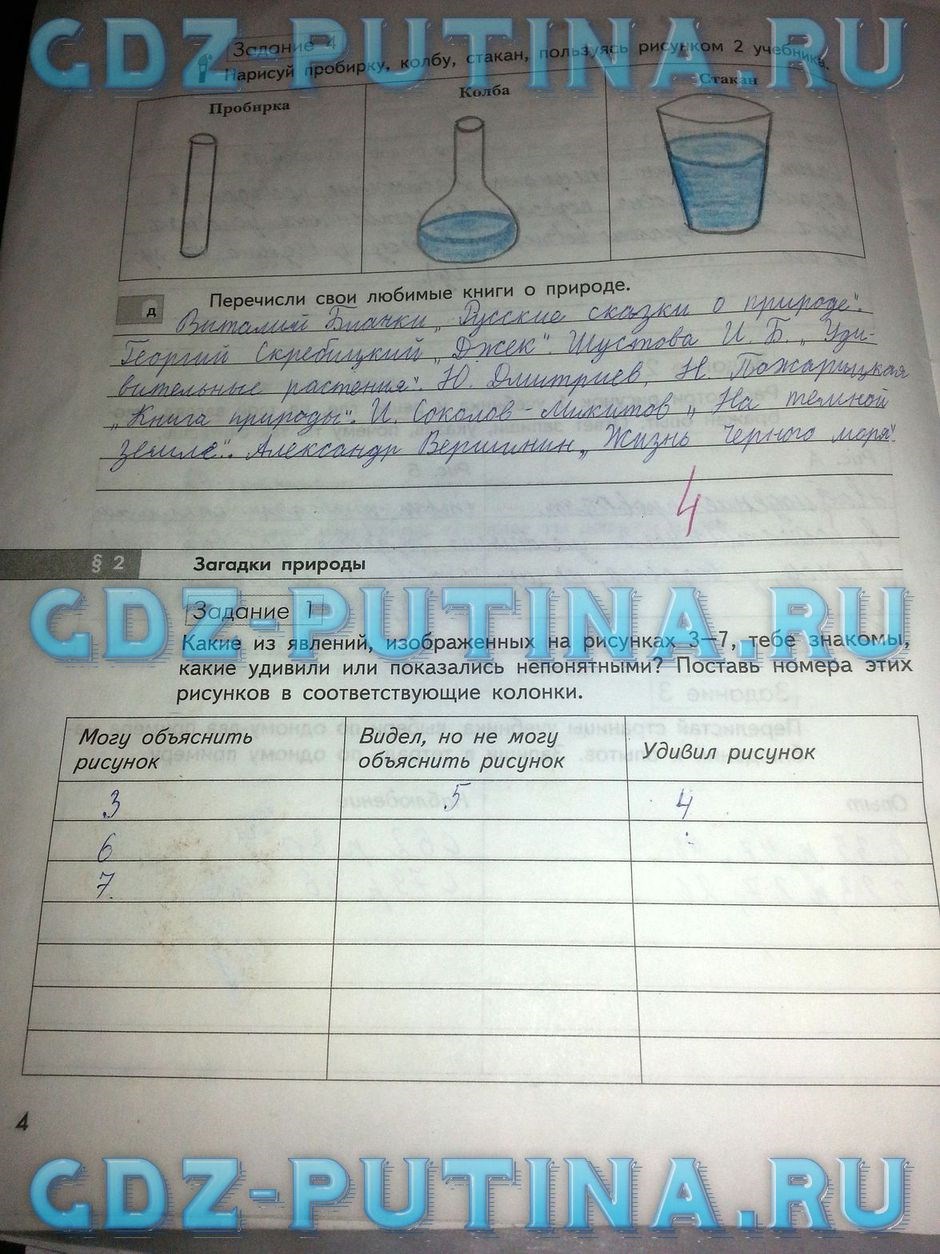 GDZ-PUTINA.RU
Задание 4
Нарисуй пробирку, колбу, стакан, пользуясь рисунком 2 учебника.
Пробирка
Колба
Стакан
д
Перечисли свои любимые книги о природе.
Виталий Бианки „Русские сказки о природе".
Георгий Скребицкий „Джек". Шустова И. Б. „Уди-
вительные растения". Ю. Дмитриев, Н. Пожарицкая
„Книга природы". И. Соколов-Микитов „На темной
земле". Александр Вершинин „Жизнь Черного моря".
4
§ 2
Загадки природы
GDZ-PUTINA.RU
Задание 1
Какие из явлений, изображенных на рисунках 3—7, тебе знакомы,
какие удивили или показались непонятными? Поставь номера этих
рисунков в соответствующие колонки.
Могу объяснить
рисунок
Видел, но не могу
объяснить рисунок
Удивил рисунок
3 5 4
6
7.
4
GDZ-PUTINA.RU